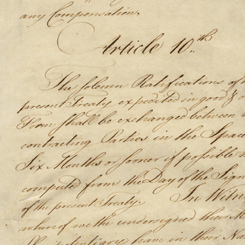 any Compensation.
Article 10.th
The Solemn Ratifications of
present Treaty expedited in good &
Form shall be exchanged between
contracting Parties in the Space
Six Months or sooner if possible
computed from the Day of the Sign
of the present Treaty. In Witn
whereof we the undersigned